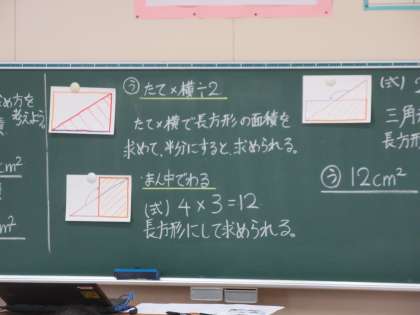 め方を
考えよう。
cm²
cm²
う たて×横÷2
たて×横で長方形の面積を
求めて、半分にすると、求められる。
まん中でわる
(式) 4×3=12
長方形にして求められる。
(式)
三角
長方形
う 12cm²